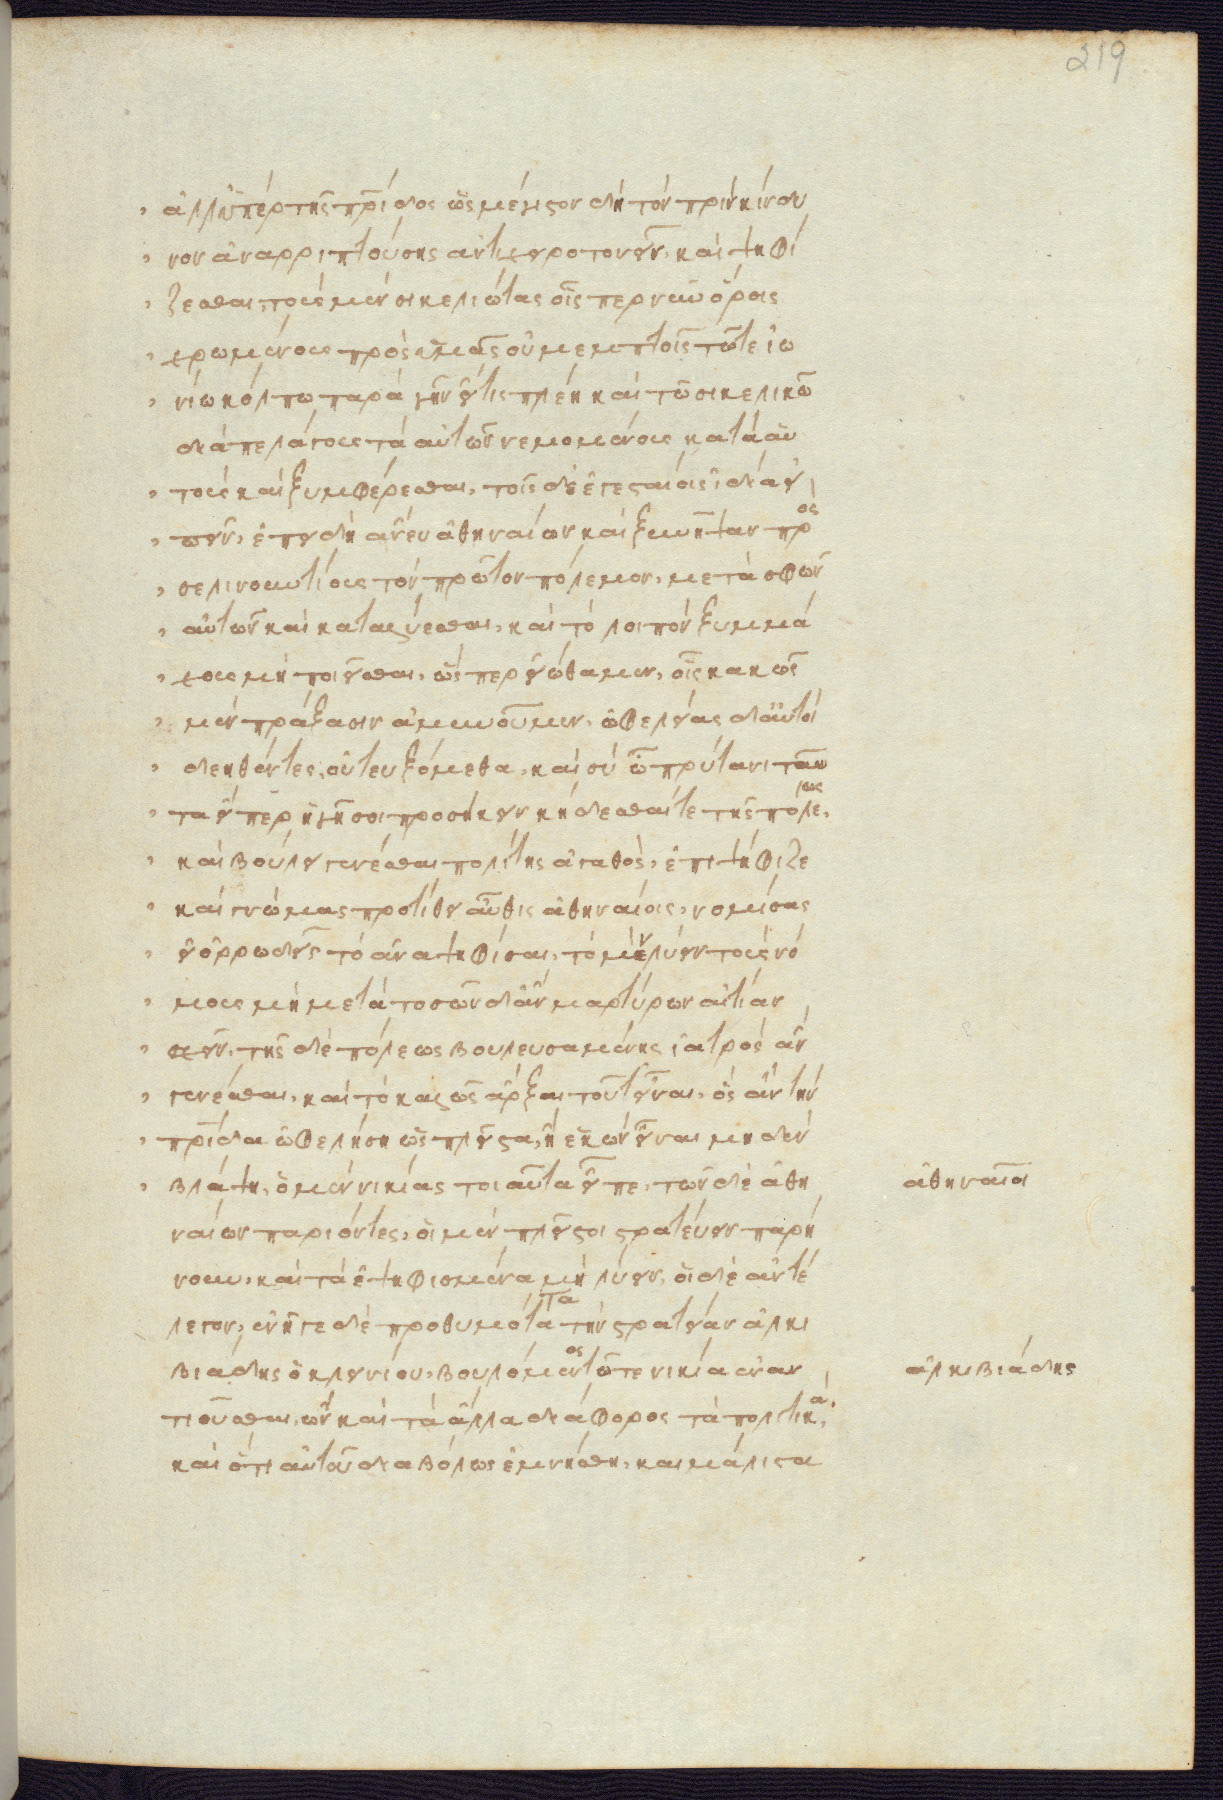 219
ἀλλ' ὑπὲρ τῆς πρίδος ὡς μέγιστον δὴ τὸν πρὶν κίνδυ
νον ἀναρριπτούσης ἀντιχειροτονεῖν, καὶ ψηφί
ζεσθαι, τοὺς μὲν σικελιώτας οἷσπερ νῦν ὅροις
χρωμένους πρὸς ἡμᾶς οὐ μεμπτοῖς τῶ τε ἰω
νίω κόλπω παρὰ γῆν ἤν τις πλέη καὶ τῶ σικελικῶ
διὰ πελάγους τὰ αὑτῶν νεμομένους καθ' αὑ
τοὺς καὶ ξυμφέρεσθαι, τοῖς δὲ ἐγεσταίοις ἰδία εἰ
πεῖν, ἐπειδὴ ἄνευ ἀθηναίων καὶ ξυνῆψαν πρὸς
σελινουντίους τὸν πρῶτον πόλεμον, μετὰ σφῶν
αὐτῶν καὶ καταλύεσθαι, καὶ τὸ λοιπὸν ξυμμά
χους μὴ ποιεῖσθαι, ὥσπερ εἰώθαμεν, οἷς κακῶς
μὲν πράξασιν ἀμυνοῦμεν, ὠφελείας δ' αὐτοὶ
δεηθέντες, οὐ τευξόμεθα, καὶ σὺ ὦ πρύτανι ταῦ
τα εἴπερ ἡγῆ σοι προσήκειν κήδεσθαί τε τῆς πόλεως,
καὶ βούλει γενέσθαι πολίτης ἀγαθός, ἐπιψήφιζε
καὶ γνώμας προτίθει αὖθις ἀθηναίοις, νομίσας
εἰ ὀρρωδεῖς τὸ ἀναψηφίσαι, τὸ μὲν λύειν τοὺς νό
μους μὴ μετὰ τοσῶνδ' ἂν μαρτύρων αἰτίαν
σχεῖν, τῆς δὲ πόλεως βουλευσαμένης ἰατρὸς ἂν
γενέσθαι, καὶ τὸ καλῶς ἄρξαι τοῦτ' εἶναι, ὃς ἂν τὴν
πρίδα ὠφελήση ὡς πλεῖστα, ἢ ἑκὼν εἶναι μηδὲν
βλάψη, ὁ μὲν νικίας τοιαῦτα εἶπε, τῶν δὲ ἀθη
ἀθηναῖοι
ναίων παριόντες, οἱ μὲν πλεῖστοι στρατεύειν παρή
νουν, καὶ τὰ ἐψηφισμένα μὴ λύειν, οἱ δὲ ἀντέ
λεγον, ἐνῆγε δὲ προθυμότατα τὴν στρατείαν ἀλκι
βιάδης ὁ κλεινίου, βουλόμενος τῶ τε νικία ἐναν
ἀλκιβιάδης
τιοῦσθαι, ὢν καὶ τὰ ἄλλα διάφορος τὰ πολιτικά,
καὶ ὅτι αὐτοῦ διαβόλως ἐμνήσθη, καὶ μάλιστα